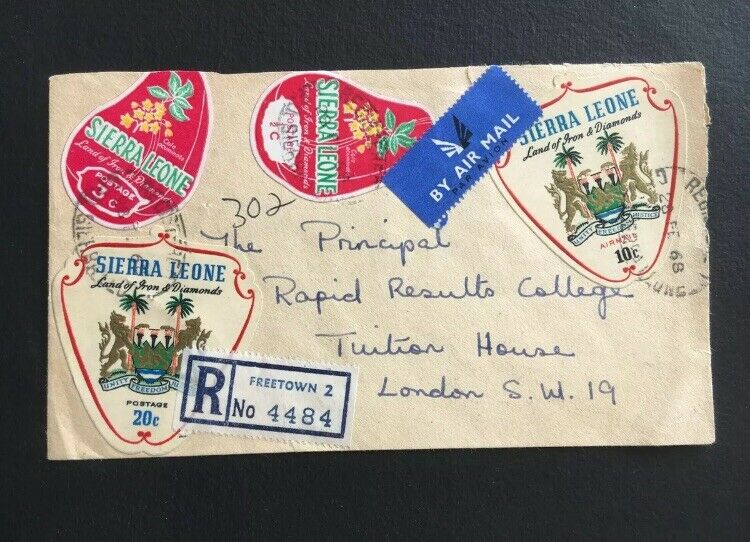 SIERRA LEONE
Land of Iron & Diamonds
POSTAGE
3 C
SIERRA LEONE
Land of Iron & Diamonds
POSTAGE
½ C
BY AIR MAIL
PAR AVION
SIERRA LEONE
Land of Iron & Diamonds
UNITY FREEDOM JUSTICE
AIRMAIL
10c
68
302
The Principal
Rapid Results College
Tuition House
London S.W.19
SIERRA LEONE
Land of Iron & Diamonds
UNITY FREEDOM
POSTAGE
20c
R
FREETOWN 2
No 4484